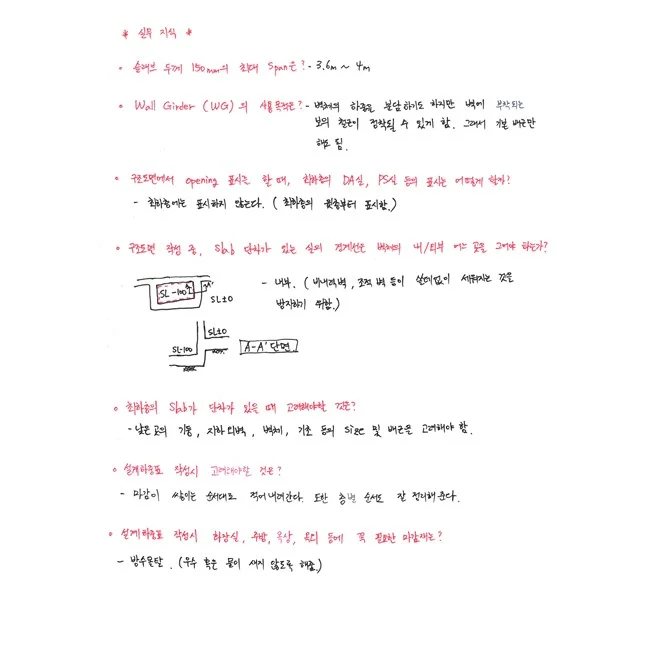 * 실무 지식 *
∘ 슬래브 두께 150mm의 최대 Span은? - 3.6m ~ 4m
∘ Wall Girder (WG)의 사용목적은? - 벽체의 하중을 분담하기도 하지만 벽에 부착되는
보의 철근이 정착될 수 있게 함. 그래서 기본 배근만
해도 됨.
∘ 구조도면에서 opening 표시를 할 때, 최하층의 DA실, PS실 등의 표시는 어떻게 할까?
- 최하층에는 표시하지 않는다. (최하층의 윗층부터 표시함.)
∘ 구조도면 작성 중, Slab 단차가 있는 실의 경계선은 벽체의 내/외부 어느 곳을 그어야 하는가?
- 내부. (비내력벽, 조적벽 등이 쓸데없이 세워지는 것을
방지하기 위함.)
SL-100
A A'
SL±0
SL±0
SL-100
A-A' 단면
∘ 최하층의 Slab가 단차가 있을 때 고려해야할 것은?
- 낮은 곳의 기둥, 지하외벽, 벽체, 기초 등의 size 및 배근을 고려해야 함.
∘ 설계하중표 작성시 고려해야할 것은?
- 마감이 쌓이는 순서대로 적어내려간다. 또한 층별 순서도 잘 정리해준다.
∘ 설계하중표 작성시 화장실, 주방, 옥상, 옥외 등에 꼭 필요한 마감재는?
- 방수몰탈. (우수 혹은 물이 새지 않도록 해줌.)